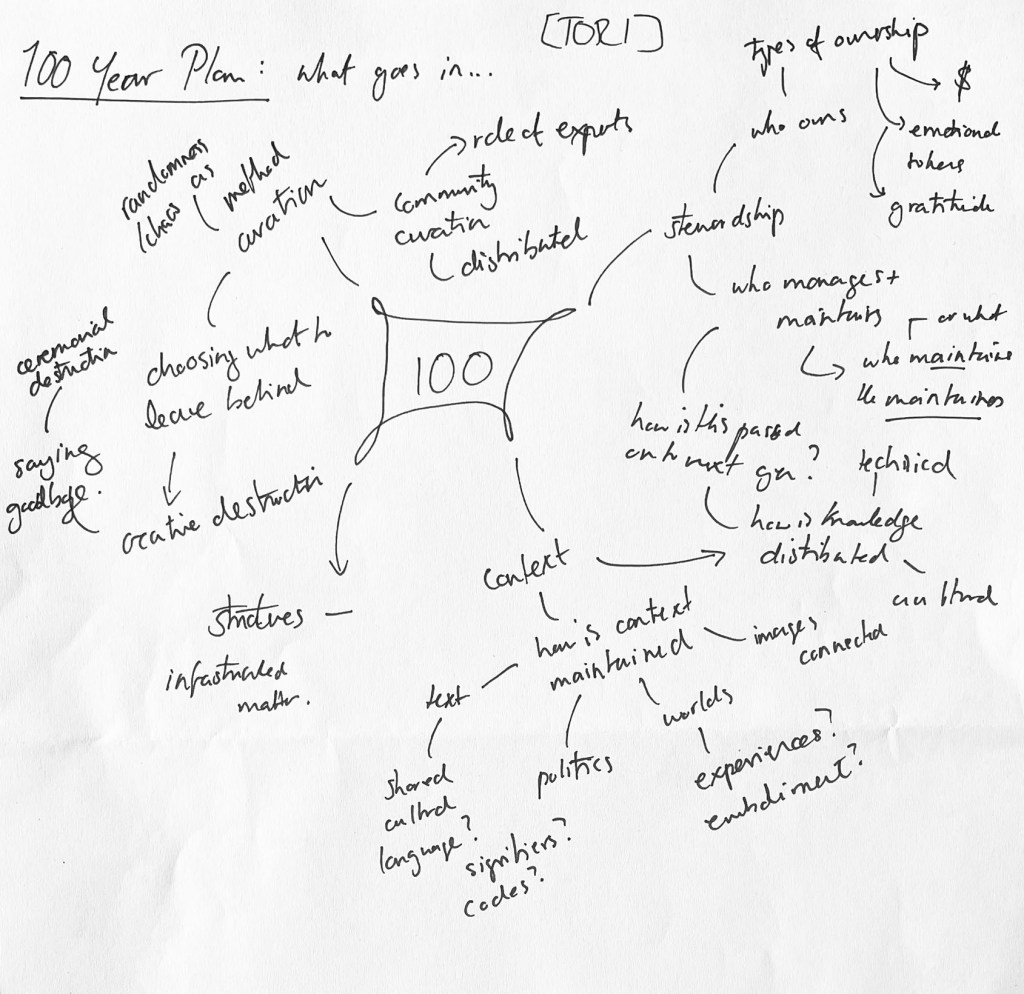 [TORI]
100 Year Plan: what goes in...
types of ownership
$
emotional
tokens
gratitude
who owns
stewardship
who manages +
maintains
or what
who maintains
the maintainers
how is this passed
on to next gen?
technical
how is knowledge
distributed
cultural
role of experts
community
curation
distributed
randomness
/chaos as
method
curation
100
choosing what to
leave behind
ceremonial
destruction
saying
goodbye.
creative destruction
structures
matter.
context
how is context
maintained
images
connected
text
worlds
experiences?
embodiment?
politics
shared
cultural
language?
signifiers?
codes?